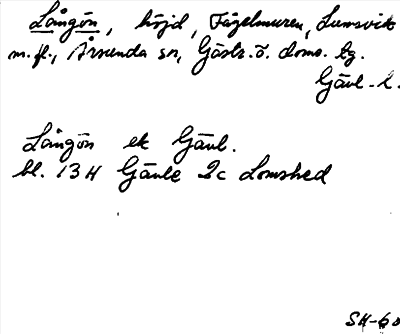 Långön, höjd, Fågelmuren, Lumsvik
m.fl., Årsunda sn, Gästr. ö. doms. tg.
Gävl. l.
Långön ek Gävl.
bl. 13H Gävle 2c Lomshed
SH-60